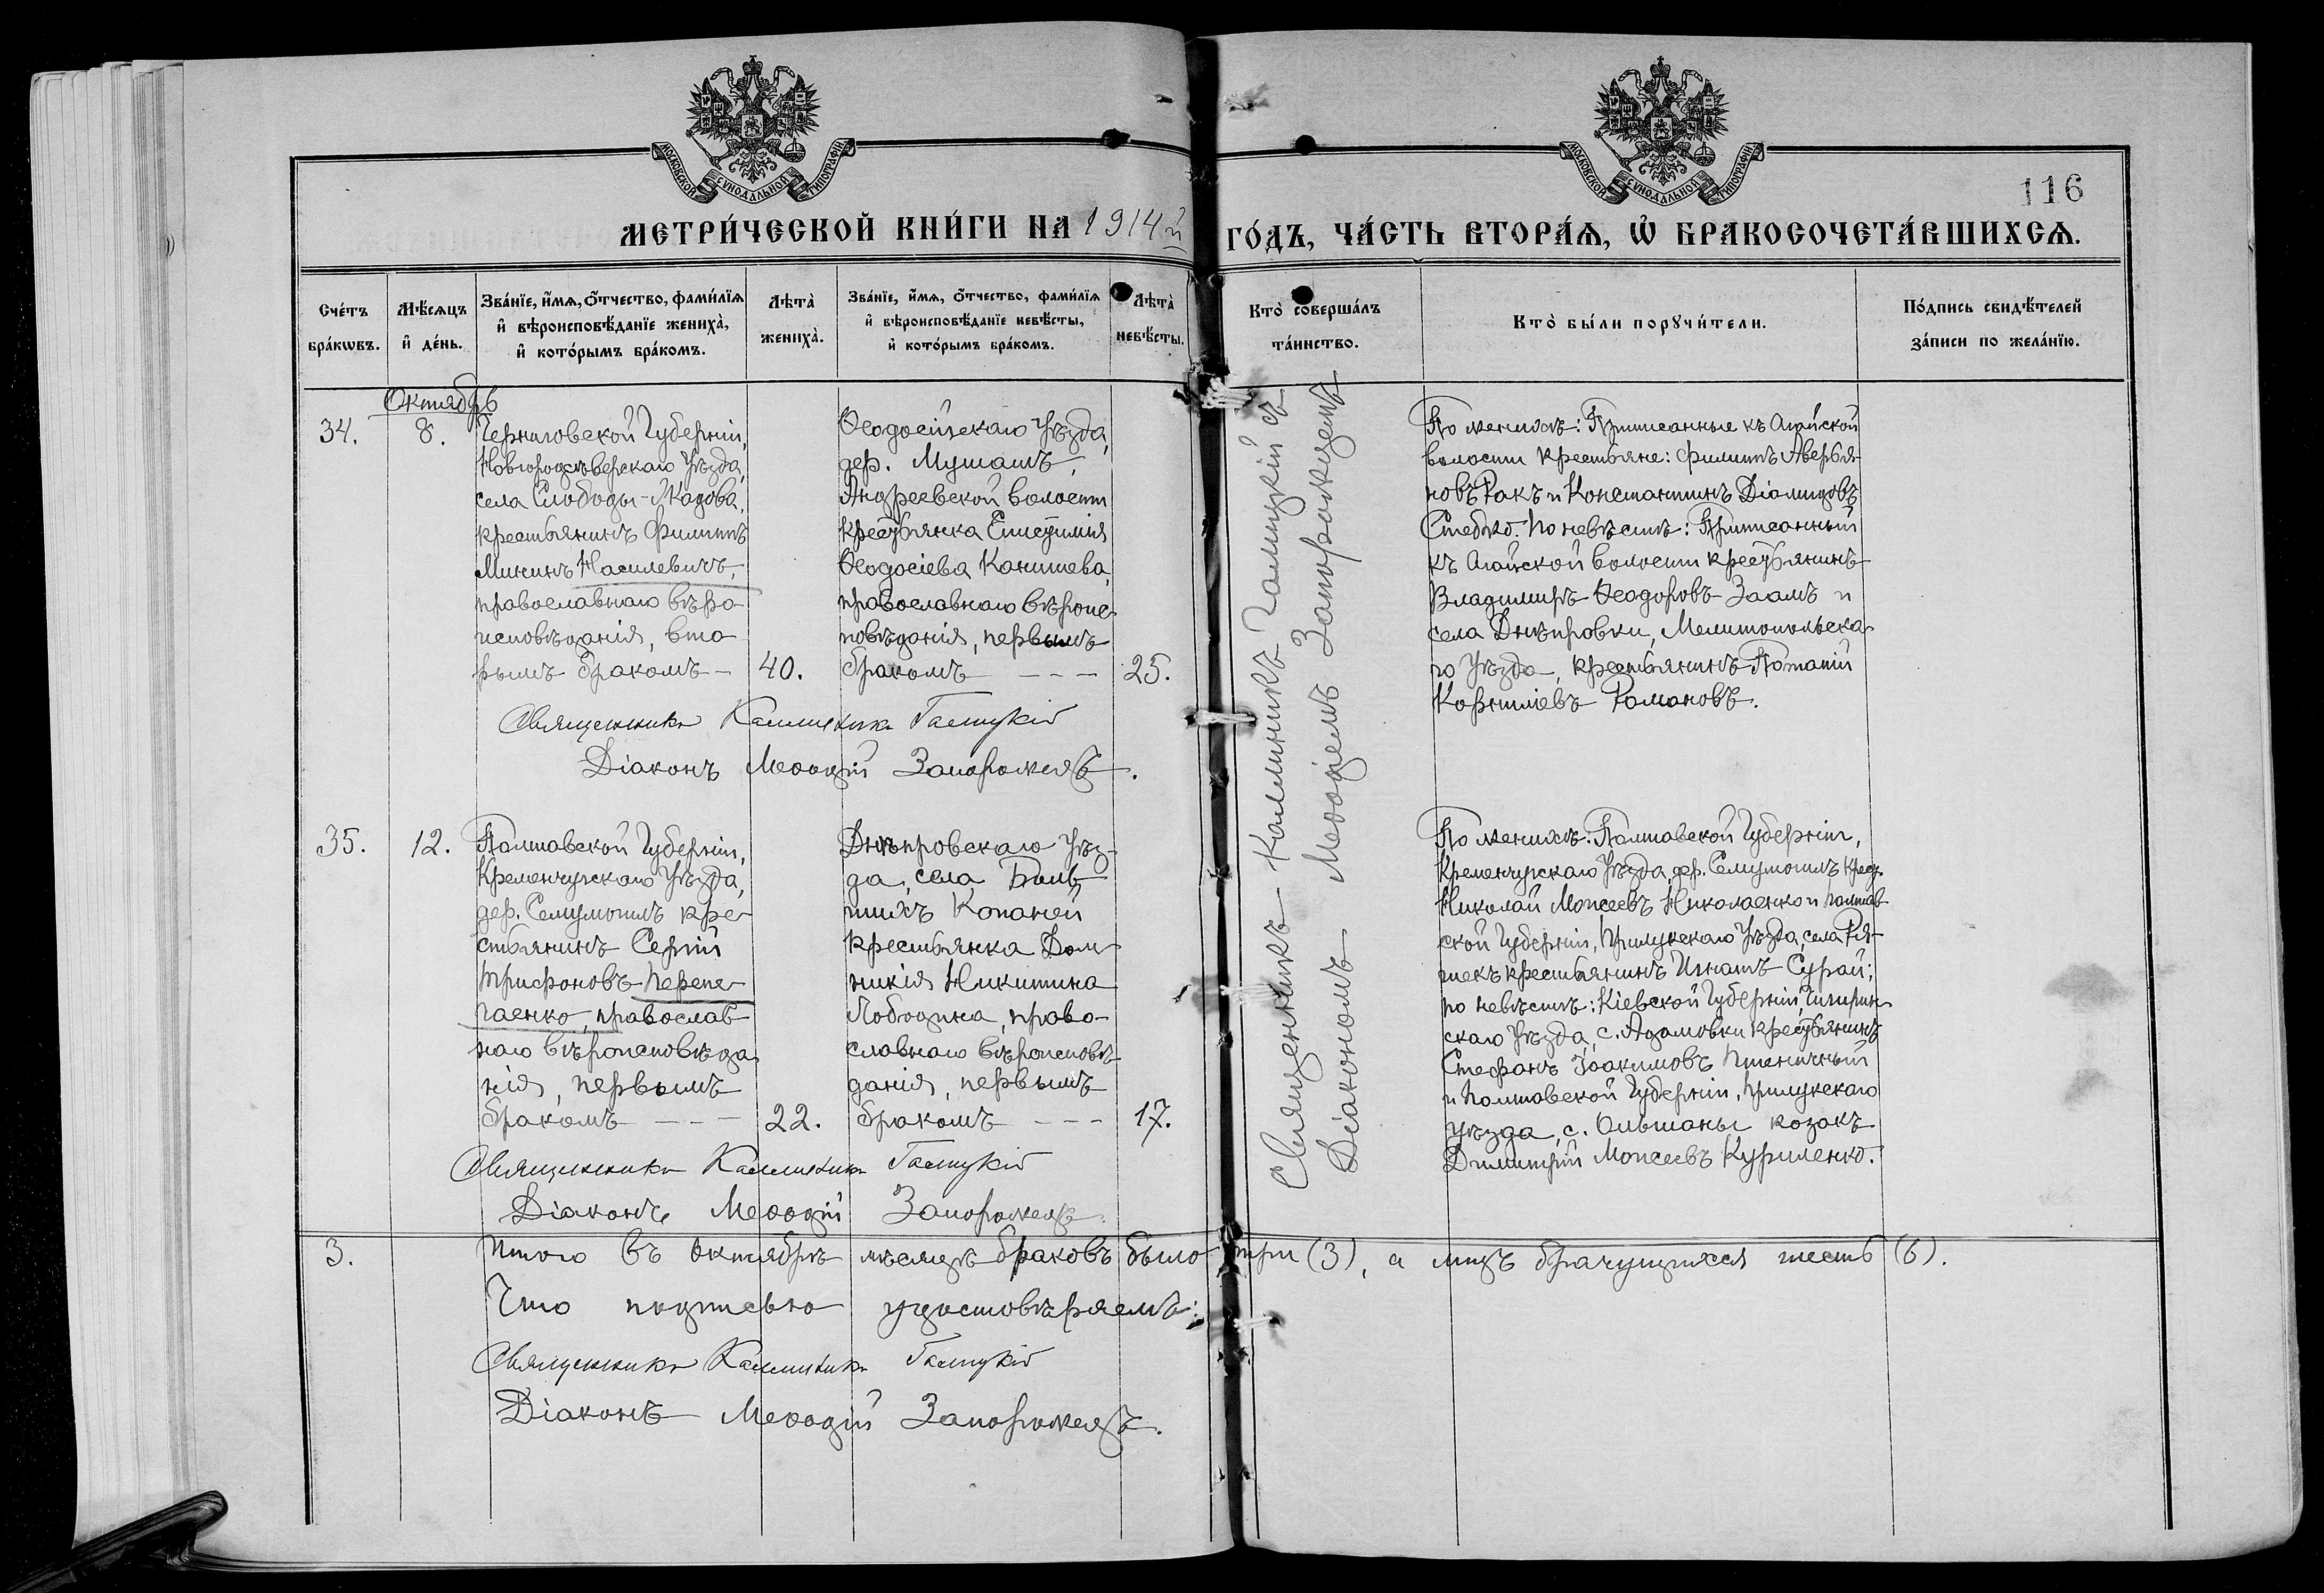 МОСКОВСКОЙ СѴНОДАЛЬНОЙ ТИПОГРАФІИ
МОСКОВСКОЙ СѴНОДАЛЬНОЙ ТИПОГРАФІИ
116
МЕТРИ́ЧЕСКОЙ КНИ́ГИ НА 1914й ГО́ДЪ, ЧА́СТЬ ВТОРА́Ѧ, Ѽ БРАКОСОЧЕТА́ВШИХСѦ.
Сче́тъ
бра́кѡвъ.
Мѣ́сѧцъ
и҆ де́нь.
Зва́нїе, и҆́мѧ, ѻ҆́тчество, фами́лїѧ
и҆ вѣроисповѣ́данїе жениха̀,
и҆ кото́рымъ бра́комъ.
Лѣта̀
жениха̀.
Зва́нїе, и҆́мѧ, ѻ҆́тчество, фами́лїѧ
и҆ вѣроисповѣ́данїе невѣ́сты,
и҆ кото́рымъ бра́комъ.
Лѣта̀
невѣ́сты.
Кто̀ соверша́лъ
та́инство.
Кто̀ бы́ли порꙋчи́тели.
По́дпись свидѣ́телей
за́писи по жела́нїю.
Октябрь
34.
8.
Черниговской Губерніи,
Новгородсѣверскаго Уѣзда,
села Слободы-Жадова,
крестьянинъ Филиппъ
Мининъ Насилевичъ,
православнаго вѣро-
исповѣданія, вто-
рымъ бракомъ -
40.
Ѳеодосійскаго Уѣзда,
дер. Мушашъ,
Андреевской волости
крестьянка Епистимія
Ѳеодосіева Канишева,
православнаго вѣроис-
повѣданія, первымъ
бракомъ - - -
25.
Священникъ Каллиникъ Галицкій
Діаконъ Меѳодій Запорожецъ.
Священникъ Каллиникъ Галицкій съ
Діакономъ Меѳодіемъ Запорожцемъ
По женихѣ: Приписанные къ Агайской
волости крестьяне: Филиппъ Аверья-
новъ Ракъ и Константинъ Діамидовъ
Стебло. По невѣстѣ: Приписанный
къ Агайской волости крестьянинъ
Владимиръ Ѳеодоровъ Заамъ и
села Днѣпровки, Мелитопольска-
го Уѣзда, крестьянинъ Потапій
Корниліевъ Романовъ.
35.
12.
Полтавской Губерніи,
Кременчугскаго Уѣзда,
дер. Семимогилъ кре-
стьянинъ Сергій
Трифоновъ Перепе-
лаенко, православ-
наго вѣроисповѣда-
нія, первымъ
бракомъ - - -
22.
Днѣпровскаго Уѣз-
да, села Боль-
шихъ Копаней
крестьянка Дом-
никія Никитина
Лободина, право-
славнаго вѣроисповѣ-
данія, первымъ
бракомъ - - -
17.
Священникъ Каллиникъ Галицкій
Діаконъ Меѳодій Запорожецъ.
По женихѣ: Полтавской Губерніи,
Кременчугскаго Уѣзда, дер. Семимогилъ крест.
Николай Моисеевъ Николаенко и Полтав-
ской Губерніи, Прилукскаго Уѣзда, села Ря-
шекъ крестьянинъ Игнатъ Сурай;
по невѣстѣ: Кіевской Губерніи, Чигирин-
скаго Уѣзда, с. Адамовки крестьянинъ
Стефанъ Іоакимовъ Пшеничный
и Полтавской Губерніи, Прилукскаго
Уѣзда, с. Ольшаны козакъ
Димитрій Моисеевъ Куриленко.
3.
Итого въ Октябрѣ мѣсяцѣ браковъ было три (3), а лицъ брачущихся шесть (6).
Что подписью удостовѣряемъ:
Священникъ Каллиникъ Галицкій
Діаконъ Меѳодій Запорожецъ.